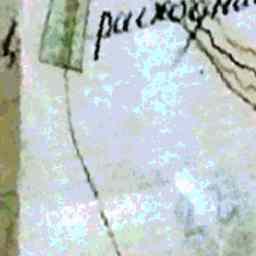 расходна